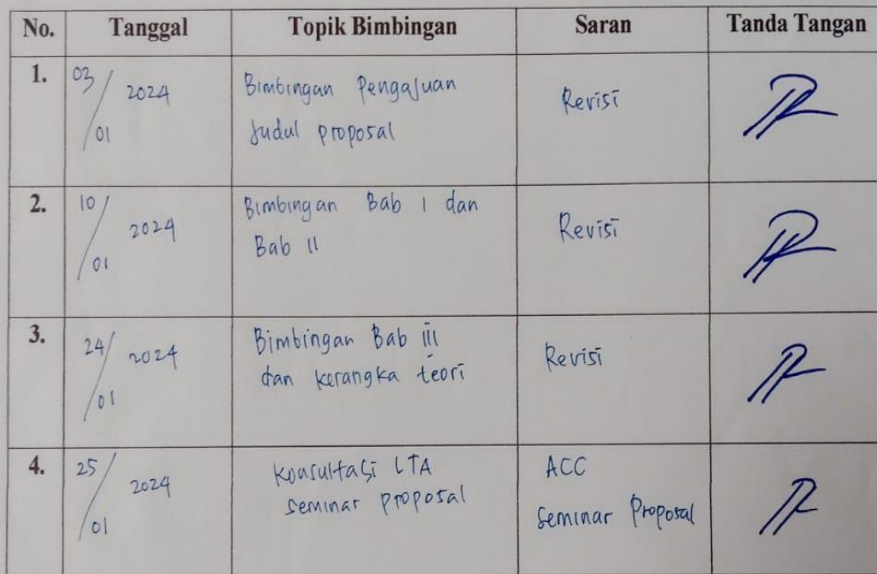 No. Tanggal Topik Bimbingan Saran Tanda Tangan
1. 03/01 2024 Bimbingan Pengajuan Revisi
Judul proposal
2. 10/01 2024 Bimbingan Bab I dan Revisi
Bab II
3. 24/01 2024 Bimbingan Bab III Revisi
dan kerangka teori
4. 25/01 2024 Konsultasi LTA ACC
seminar proposal Seminar Proposal